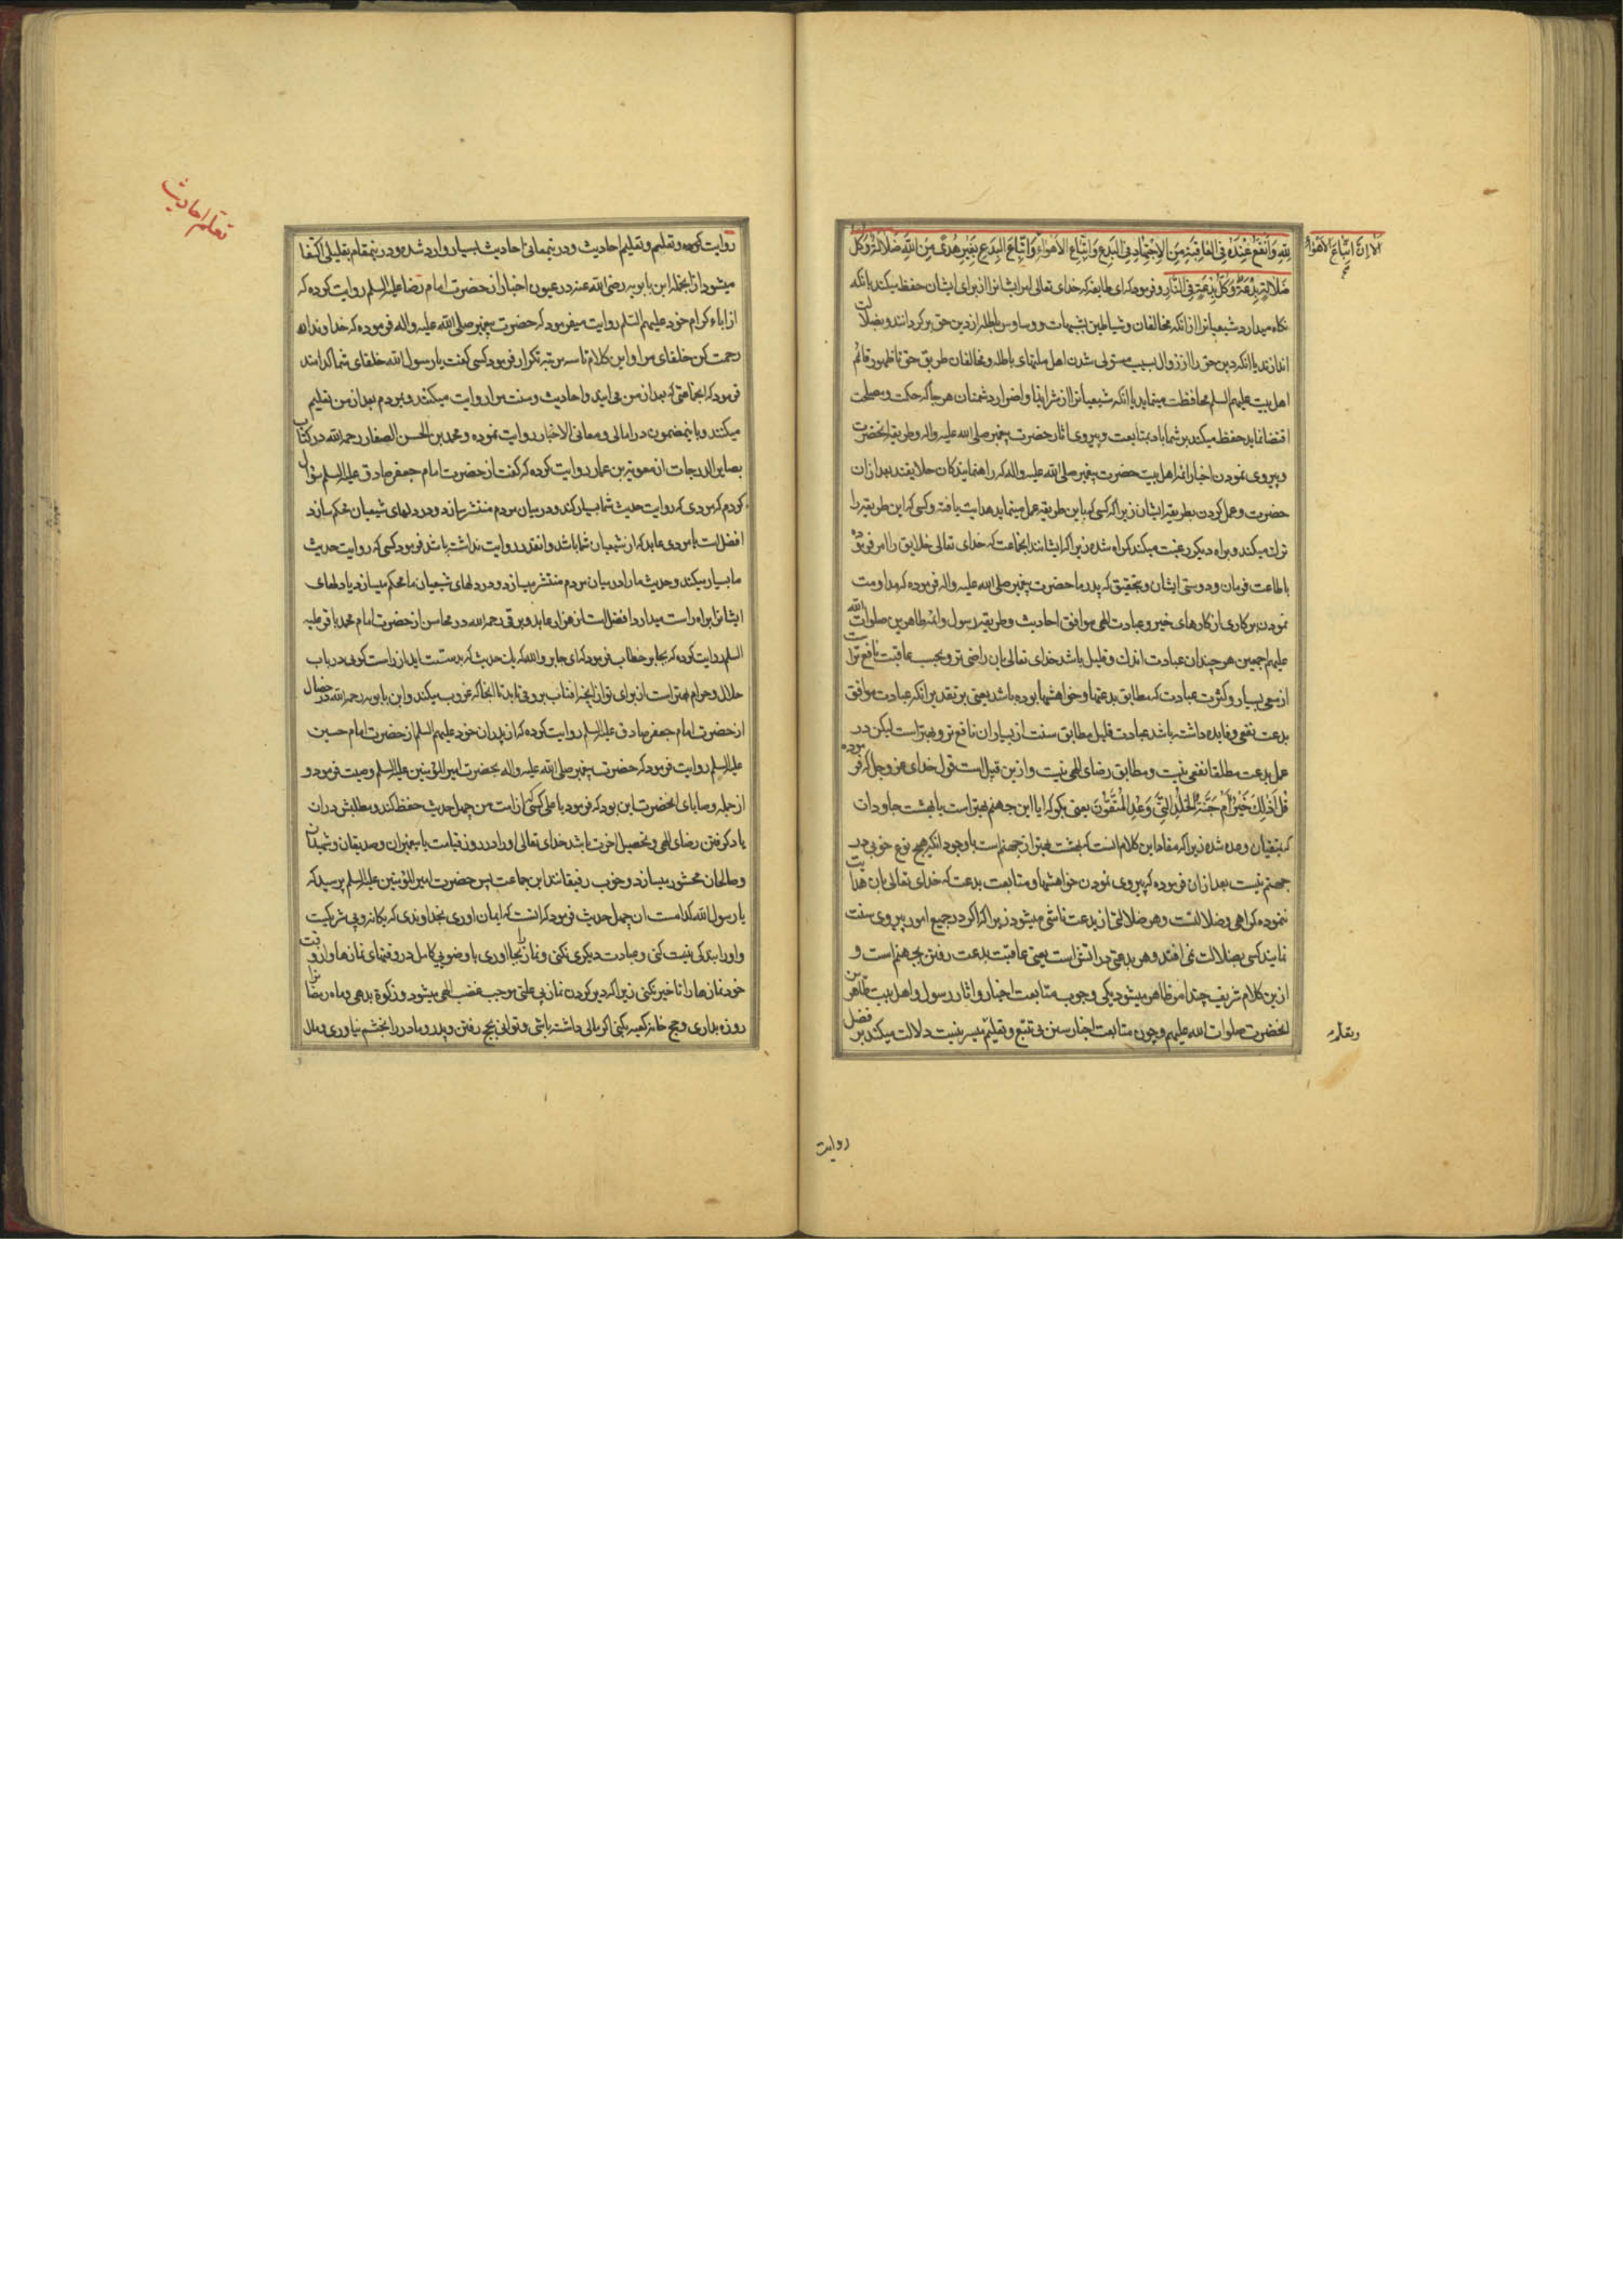 لِلّٰهِ وَأَنْفَعُ عِنْدَهُ فِي الْعَاقِبَةِ مِنَ الْاِجْتِهَادِ فِي الْبِدَعِ وَاتِّبَاعِ الْاَهْوَاءِ وَاتِّبَاعُ الْبِدَعِ بِغَيْرِ هُدًى مِنَ اللّٰهِ ضَلَالَةٌ وَكُلُّ
اَلَا اِنَّ اتِّبَاعَ الْاَهْوَاءِ
ضَلَالَةٍ بِدْعَةٌ وَكُلُّ بِدْعَةٍ فِي النَّارِ و فرمود که ای طایفه که خدای تعالی امر ایشانرا از برای ایشان حفظ میکند یا انکه
نکاه میدارد شیعیانرا از انکه مخالفان و شیاطین بشبهات و وساوس باطله از دین حق برکردانند و بضلالت
اندازند یا انکه دین حق را از زوال بسبب مستولی شدن اهل ملتهای باطله و مخالفان طریق حق تا ظهور قائم
اهل بیت علیهم السلم محافظت مینماید یا انکه شیعیانرا از شر اینها و اضرار دشمنان هر جا که حکمت و مصلحت
اقتضا نماید حفظ میکند بر شما باد بمتابعت و پیروی اثار حضرت پیغمبر صلی الله علیه واله و طریقه انحضرت
و پیروی نمودن اخبار ائمه اهل بیت حضرت پیغمبر صلی الله علیه واله که راهنمایندکان خلایقند بعد از ان
حضرت و عمل کردن بطریقه ایشان زیرا که کسی که باین طریقه عمل مینماید هدایت یافته و کسی که این طریقه را
ترک میکند و براه دیکر رغبت میکند کمراه شده زیرا که ایشانند انجماعت که خدای تعالی خلایق را امر فرموده
باطاعت فرمان و دوستی ایشان و بتحقیق که پدر ما حضرت پیغمبر صلی الله علیه واله فرموده که مداومت
نمودن بر کاری از کارهای خیر و عبادت الهی موافق احادیث و طریقه رسول و ائمه طاهرین صلوات الله
علیهم اجمعین هر چند ان عبادت اندک و قلیل باشد خدای تعالی بان راضی تر و بحسب عاقبت نافع تر است
از سعی بسیار و کثرت عبادت که مطابق بدعتها و خواهشها بوده باشد یعنی بر تقدیر انکه عبادت موافق
بدعت نفعی و فایده داشته باشد عبادت قلیل مطابق سنت از بسیار ان نافع تر و بهتر است لیکن در
عمل بدعت مطلقا نفعی نیست و مطابق رضای الهی نیست و ازین قبیل است قول خدای عز و جل که فرموده
قُلْ أَذٰلِكَ خَيْرٌ أَمْ جَنَّةُ الْخُلْدِ الَّتِي وُعِدَ الْمُتَّقُونَ یعنی بکو که ایا این جهنم بهتر است یا بهشت جاودان
که بمتقیان وعده شده زیرا که مفاد این کلام انست که بهشت بهتر از جهنم است با وجود انکه هیچ نوع خوبی در
جهنم نیست بعد از ان فرموده که پیروی نمودن خواهشها و متابعت بدعت که خدای تعالی بان هدایت
ننموده کمراهی و ضلالتست و هر ضلالتی از بدعت ناشی میشود زیرا که اکر در جمیع امور پیروی سنت
نمایند کسی بضلالت نمی افتد و هر بدعتی در اتش است یعنی عاقبت بدعت رفتن بجهنم است و
ازین کلام شریف چند امر ظاهر میشود یکی وجوب متابعت اخبار و اثار رسول و اهل بیت طاهرین
انحضرت صلوات الله علیهم و چون متابعت اخبار سنن بی تتبع و تعلیم میسر نیست دلالت میکند بر فضل
وتعلم
روایت
تعلم احادیث
روایت کردن و تعلیم و تعلیم احادیث و در ینمعانی احادیث بسیار وارد شده و در ینمقام بقلیلی اکتفا
میشود از انجمله ابن بابویه رضی الله عنه در عیون اخبار از حضرت امام رضا علیه السلم روایت کرده که
از اباء کرام خود علیهم السلم روایت میفرمود که حضرت پیغمبر صلی الله علیه واله فرموده که خداوندا
رحمت کن خلفای مرا و این کلام تا سه مرتبه تکرار فرمود کسی کفت یا رسول الله خلفای شما کدامند
فرمود که انجماعتی که بعد از من می ایند و احادیث و سنت مرا روایت میکنند و بمردم بعد از من تعلیم
میکنند و باینمضمون در امالی و معانی الاخبار روایت نموده و محمد بن الحسن الصفار رحمه الله در کتاب
بصایر الدرجات از معویة بن عمار روایت کرده که کفت از حضرت امام جعفر صادق علیه السلم سؤال
کردم که مردی که روایت حدیث شما بسیار کند و در میان مردم منتشر سازد و در دلهای شیعیان محکم سازد
افضلست یا مردی عابد که از شیعیان شما باشد و انقدر روایت نداشته باشد فرمود کسی که روایت حدیث
ما بسیار میکند و حدیث ما را در میان مردم منتشر میسازد و در دلهای شیعیان ما محکم میسازد یا دلهای
ایشانرا براه راست میدارد افضل است از هزار عابد و برقی رحمه الله در محاسن از حضرت امام محمد باقر علیه
السلم روایت کرده که بجابر خطاب فرمود که ای جابر والله که یک حدیث که بدستت اید از راست کویی در باب
حلال و حرام بهتر است از برای تو از انچه افتاب بر و می تابد تا انجا که غروب میکند و ابن بابویه رحمه الله در خصال
از حضرت امام جعفر صادق علیه السلم روایت کرده که از پدران خود علیهم السلم از حضرت امام حسین
علیه السلم روایت فرمود که حضرت پیغمبر صلی الله علیه واله بحضرت امیر المؤمنین علیه السلم وصیت فرمود و
از جمله وصایای انحضرت این بود که فرمود یا علی کسی که از امت من چهل حدیث حفظ کند و مطلبش در ان
یاد کرفتن رضای الهی و تحصیل اخرت باشد خدای تعالی او را در روز قیامت با پیغمبران و صدیقان و شهیدان
و صالحان محشور میسازد و خوب رفیقانند این جماعت پس حضرت امیر المؤمنین علیه السلم پرسید که
یا رسول الله کدامست ان چهل حدیث فرمود که انست که ایمان اوری بخداوندی که یکانه و بی شریکست
و او را بندکی کنی و عبادت دیکری نکنی و نماز را بجا اوری با وضویی کامل در وقتهای نمازها و از وقت
خود نمازها را تاخیر نکنی زیرا که دیر کردن نماز بی علتی موجب غضب الهی میشود و زکوة بدهی و ماه رمضان را
روزه بداری و حج خانه کعبه بکنی اکر مالی داشته باشی و توانی بحج رفتن و پدر و مادر را بخشم نیاوری و مال